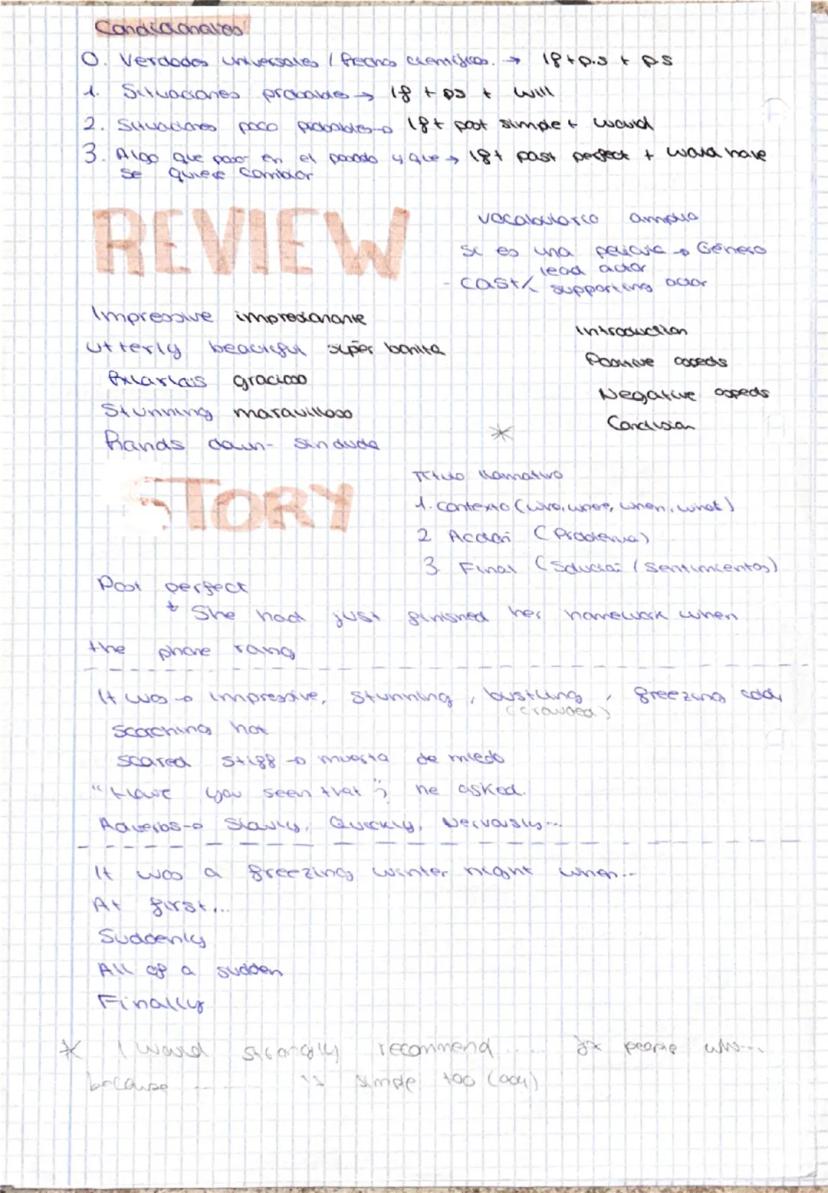 Condicionales
0. Verdades universales / hechos científicos. → If + p.s + ps
1. Situaciones probables → If + ps + will
2. Situaciones poco probables → If + past simple + would
3. Algo que pasó en el pasado y que → If + past perfect + would have
se quiere cambiar
REVIEW
vocabulario amplio
si es una película → Género
lead actor
- cast / supporting actor
Impressive impresionante
Utterly beautiful súper bonita
Hilarious gracioso
Stunning maravilloso
Hands down - sin duda
Introduction
Positive aspects
Negative aspects
Conclusion
*
STORY
Título llamativo
1. Contexto (who, where, when, what)
2 Acción (Problema)
3 Final (Solución / sentimientos)
Past perfect
* She had just finished her homework when
the phone rang
It was → impressive, stunning, bustling, freezing cold,
(crowded)
scorching hot
scared stiff → muerta de miedo
"Have you seen that"; he asked.
Adverbs → Slowly, Quickly, Nervously...
It was a freezing winter night when...
At first...
Suddenly
All of a sudden
Finally
* I would strongly recommend .... for people who...
because ........ is simple too